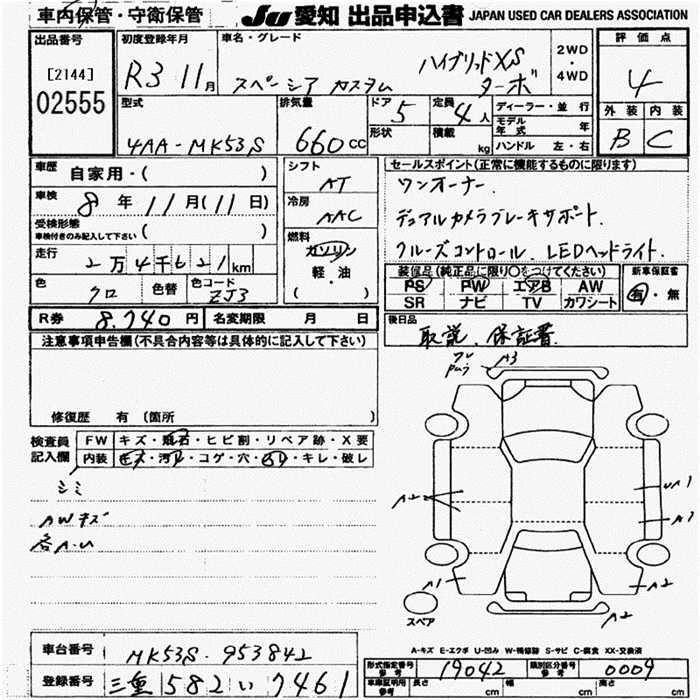 車内保管・守衛保管
JU 愛知 出品申込書 JAPAN USED CAR DEALERS ASSOCIATION
出品番号
[2144]
02555
初度登録年月
R3 11月
車名・グレード
スペーシア カスタム ハイブリッドXS ターボ
2WD・4WD
評価点
4
外装 内装
B C
型式
4AA-MK53S
排気量
660CC
ドア 5
形状
定員 4人
積載 kg
ディーラー・並行
モデル年式 年
ハンドル 左・右
車歴
自家用・( )
車検
8年 11月(11日)
受検形態
車検付きのみ記入して下さい ( )
走行
2万4千621km
色
クロ
色替
色コード
ZJ3
シフト
AT
冷房
AAC
燃料
ガソリン
軽・油
( )
セールスポイント(正常に機能するものに限ります)
ワンオーナー.
デュアルカメラブレーキサポート.
クルーズコントロール. LEDヘッドライト.
装備品(純正品に限り○をつけてください)
PS PW エアB AW
SR ナビ TV カワシート
新車保証書
有・無
R券 8.740円 名変期限 月 日
後日品
取説. 保証書.
注意事項申告欄(不具合内容等は具体的に記入して下さい)
修復歴 有 〔箇所 〕
検査員記入欄
FW キズ・飛石・ヒビ割・リペア跡・X要
内装 キズ・汚レ・コゲ・穴・凹レ・キレ・破レ
シミ
AWキズ
各A.U
A3
A2
UA1
A1
A1
A2
A2
スペア
A-キズ E-エクボ U-凹み W-補修跡 S-サビ C-腐食 XX-交換済
車台番号 MK53S-953842
登録番号 三重 582 い 7461
形式指定番号 参考 19042
類別区分番号 参考 0009
車庫証明用 参考 長さ cm 幅 cm 高さ cm